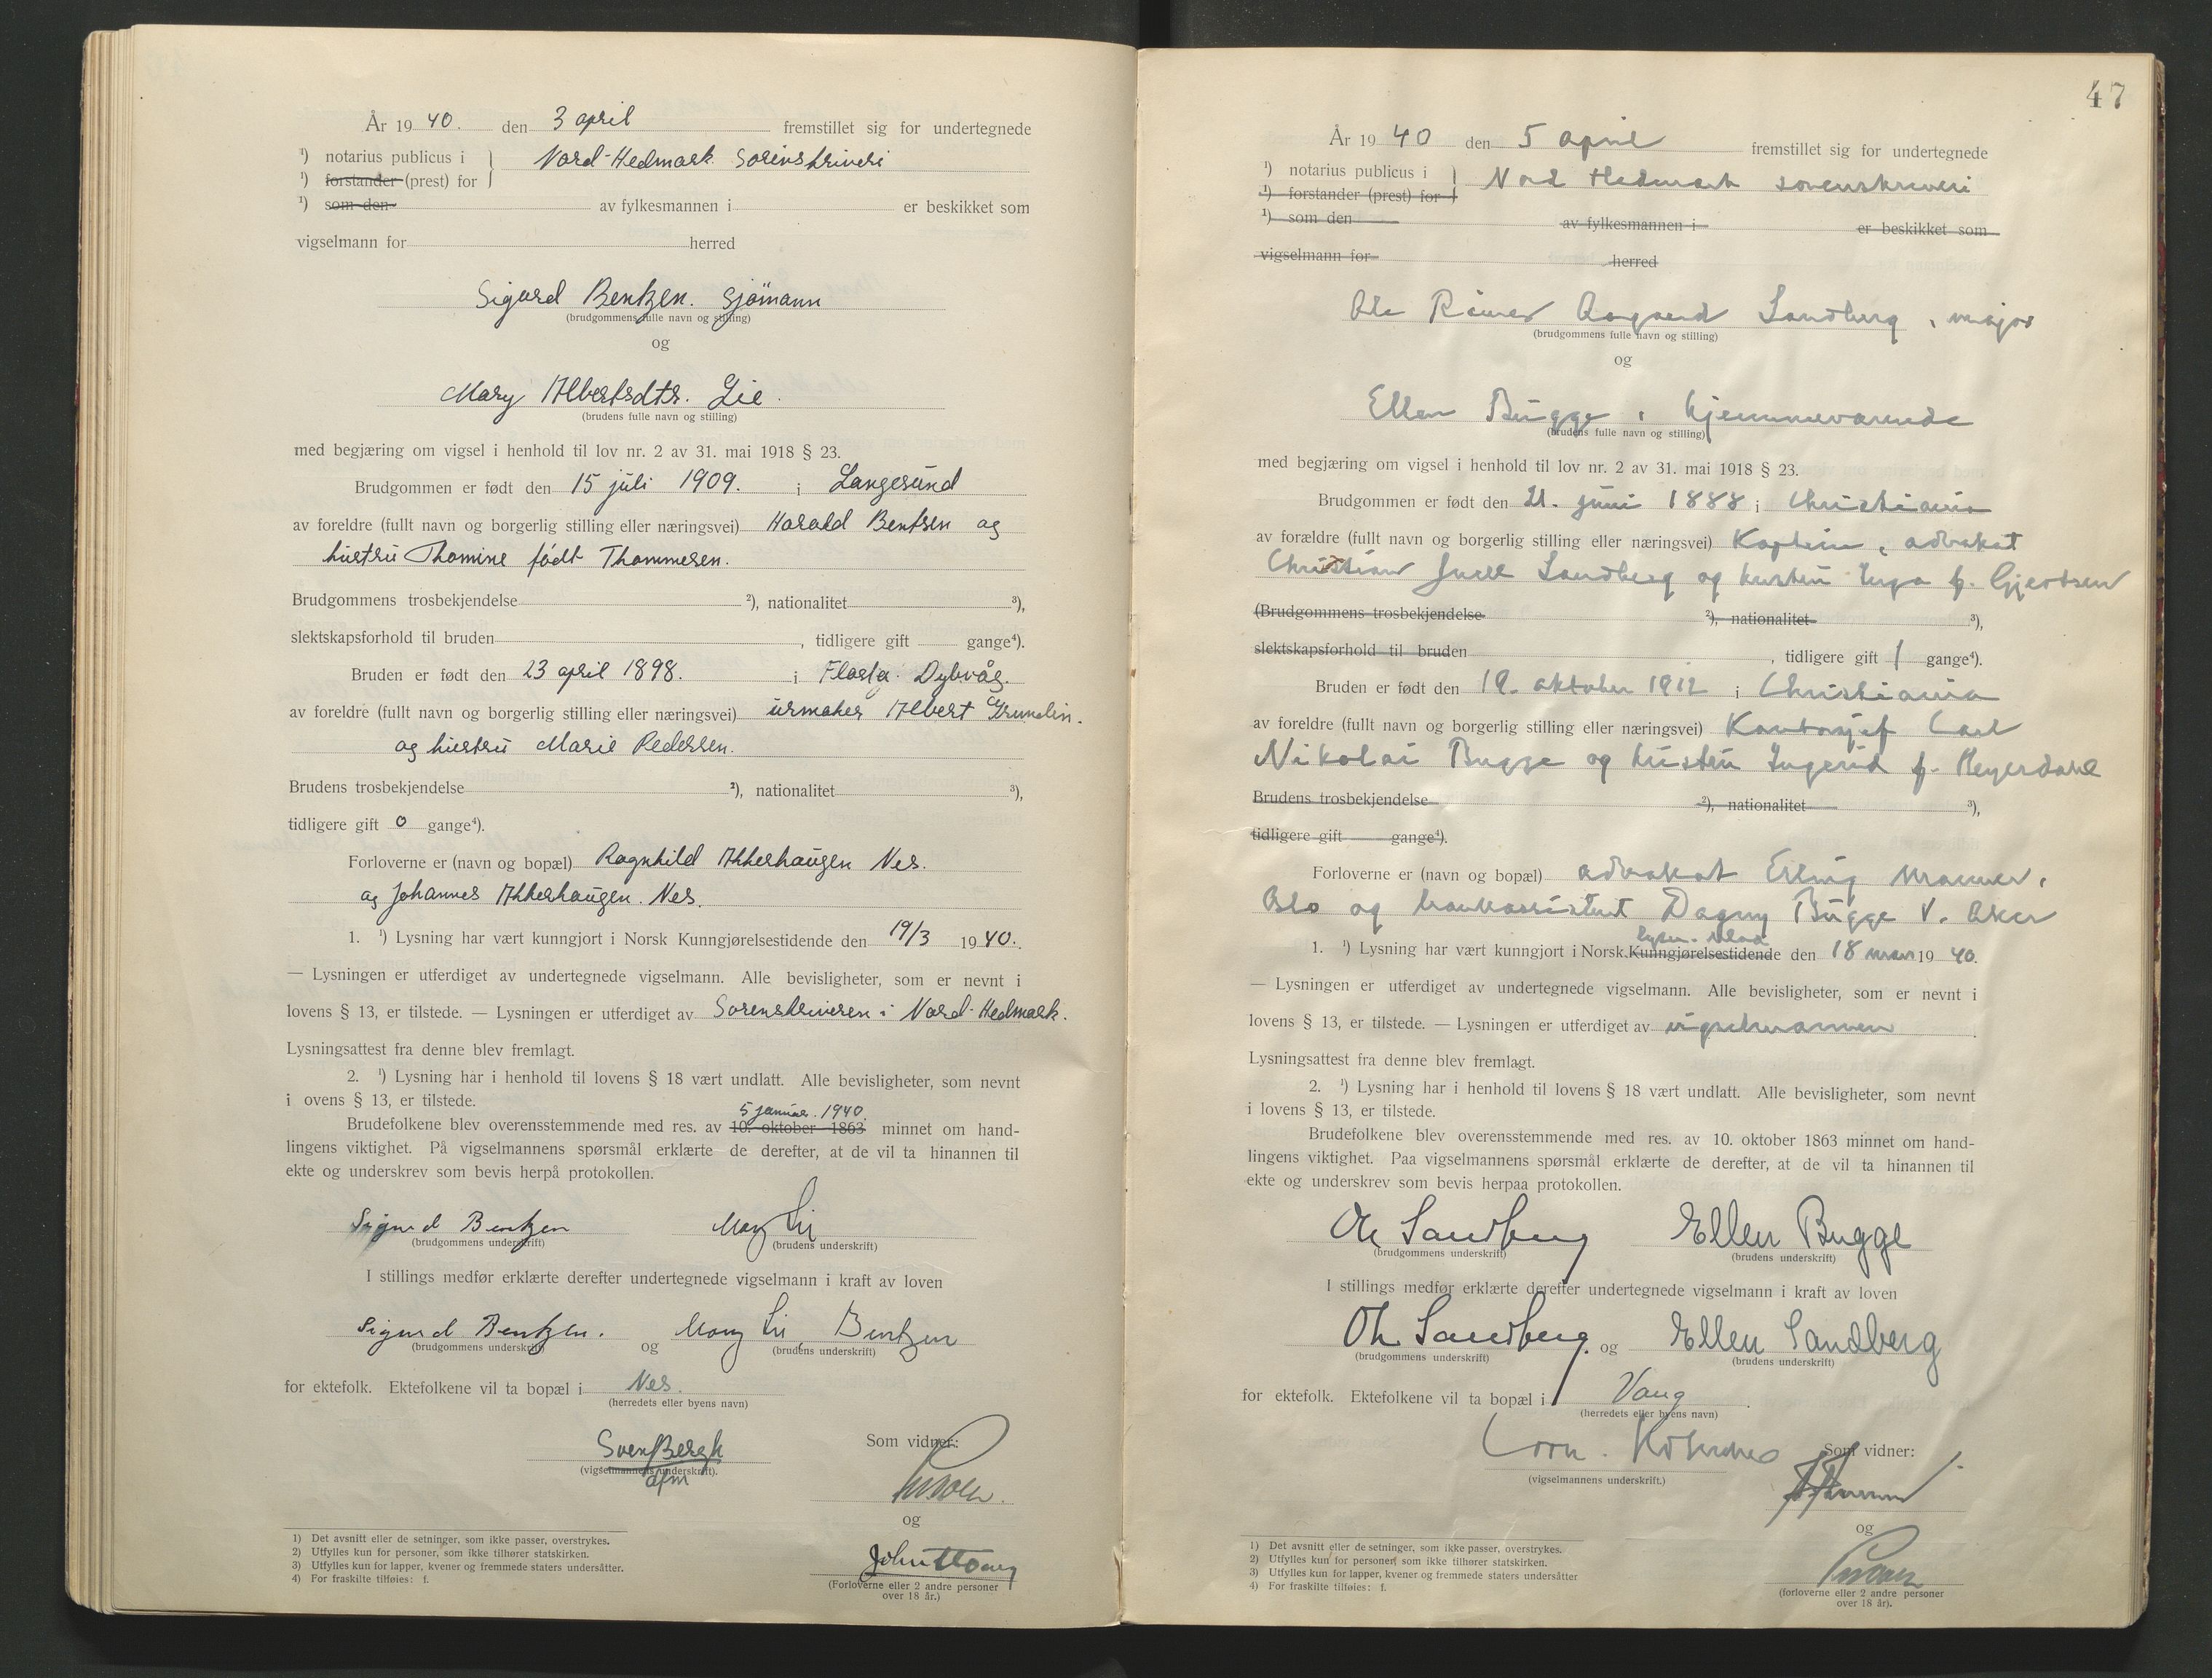 År 19 40. den 3 april fremstillet sig for undertegnede
¹) notarius publicus i } Nord-Hedmark Sorenskriveri
¹) forstander (prest) for
¹) som den av fylkesmannen i er beskikket som
vigselmann for herred
Sigurd Bentzen. Sjømann
(brudgommens fulle navn og stilling)
og
Mary Albertsdtr. Lie.
(brudens fulle navn og stilling)
med begjæring om vigsel i henhold til lov nr. 2 av 31. mai 1918 § 23.
Brudgommen er født den 15 juli 1909. i Langesund
av foreldre (fullt navn og borgerlig stilling eller næringsvei) Harald Bentsen og
hustru Thomine født Thommesen.
Brudgommens trosbekjendelse ²), nationalitet ³),
slektskapsforhold til bruden , tidligere gift gange⁴).
Bruden er født den 23 april 1898. i Dybvåg.
av foreldre (fullt navn og borgerlig stilling eller næringsvei) urmaker Albert Grundin.
og hustru Marie Pedersen.
Brudens trosbekjendelse ²), nationalitet ³),
tidligere gift 0 gange⁴).
Forloverne er (navn og bopæl) Ragnhild Akkerhaugen Nes.
og Johannes Akkerhaugen. Nes.
1. ¹) Lysning har vært kunngjort i Norsk Kunngjørelsestidende den 19/3 1940.
— Lysningen er utferdiget av undertegnede vigselmann. Alle bevisligheter, som er nevnt i
lovens § 13, er tilstede. — Lysningen er utferdiget av Sorenskriveren i Nord-Hedmark.
Lysningsattest fra denne blev fremlagt.
2. ¹) Lysning har i henhold til lovens § 18 vært undlatt. Alle bevisligheter, som nevnt
i ovens § 13, er tilstede.
5 januar. 1940.
Brudefolkene blev overensstemmende med res. av 10. oktober 1863 minnet om hand-
lingens viktighet. På vigselmannens spørsmål erklærte de derefter, at de vil ta hinannen til
ekte og underskrev som bevis herpå protokollen.
Sigurd Bentzen Mary Lie
(brudgommens underskrift) (brudens underskrift)
I stillings medfør erklærte derefter undertegnede vigselmann i kraft av loven
Sigurd Bentzen. og Mary Lie Bentzen
(brudgommens underskrift) (brudens underskrift)
for ektefolk. Ektefolkene vil ta bopæl i Nes.
(herredets eller byens navn)
Sven Bergh Som vidner:
(vigselmannens underskrift).
dfm
og
(Forloverne eller 2 andre personer
over 18 år.)
1) Det avsnitt eller de setninger, som ikke passer, overstrykes.
2) Utfylles kun for personer, som ikke tilhører statskirken.
3) Utfylles kun for lapper, kvener og fremmede staters undersåtter.
4) For fraskilte tilføies: f.
47
År 19 40 den 5 april fremstillet sig for undertegnede
¹) notarius publicus i } Nord Hedmark sorenskriveri
¹) forstander (prest) for
¹) som den av fylkesmannen i er beskikket som
vigselmann for herred
Ole Reiner Aagaard Sandberg, major
(brudgommens fulle navn og stilling)
og
Ellen Bugge, hjemmeværende
(brudens fulle navn og stilling)
med begjæring om vigsel i henhold til lov nr. 2 av 31. mai 1918 § 23.
Brudgommen er født den 21. juni 1888 i Christiania
av forældre (fullt navn og borgerlig stilling eller næringsvei) Kaptein, advokat
Christian Juell Sandberg og hustru Inga f. Gjertsen
(Brudgommens trosbekjendelse ²), nationalitet ³),
slektskapsforhold til bruden , tidligere gift 1 gange⁴).
Bruden er født den 19. oktober 1912 i Christiania
av foreldre (fullt navn og borgerlig stilling eller næringsvei) Kontorsjef Carl
Nikolai Bugge og hustru Ingerid f. Heyerdahl
Brudens trosbekjendelse ²), nationalitet ³),
tidligere gift gange⁴).
Forloverne er (navn og bopæl) advokat Erling
Oslo og bankassistent Dagny Bugge V. Aker
lysn. blad
1. ¹) Lysning har vært kunngjort i Norsk Kunngjørelsestidende den 18 mars 1940.
— Lysningen er utferdiget av undertegnede vigselmann. Alle bevisligheter, som er nevnt i
lovens § 13, er tilstede. — Lysningen er utferdiget av vigselmannen .
Lysningsattest fra denne blev fremlagt.
2. ¹) Lysning har i henhold til lovens § 18 vært undlatt. Alle bevisligheter, som nevnt
i lovens § 13, er tilstede.
Brudefolkene blev overensstemmende med res. av 10. oktober 1863 minnet om hand-
lingens viktighet. Paa vigselmannens spørsmål erklærte de derefter, at de vil ta hinannen til
ekte og underskrev som bevis herpaa protokollen.
Ole Sandberg Ellen Bugge
(brudgommens underskrift) (brudens underskrift)
I stillings medfør erklærte derefter undertegnede vigselmann i kraft av loven
Ole Sandberg. og Ellen Sandberg
(brudgommens underskrift) (brudens underskrift)
for ektefolk. Ektefolkene vil ta bopæl i Vang .
(herredets eller byens navn)
Som vidner:
(vigselmannens underskrift.)
og
(forloverne eller 2 andre personer
over 18 år).
1) Det avsnitt eller de setninger, som ikke passer, overstrykes.
2) Utfylles kun for personer, som ikke tilhører statskirken.
3) Utfylles kun for lapper, kvener og fremmede staters undersåtter
4) For fraskilte tilføies: f.